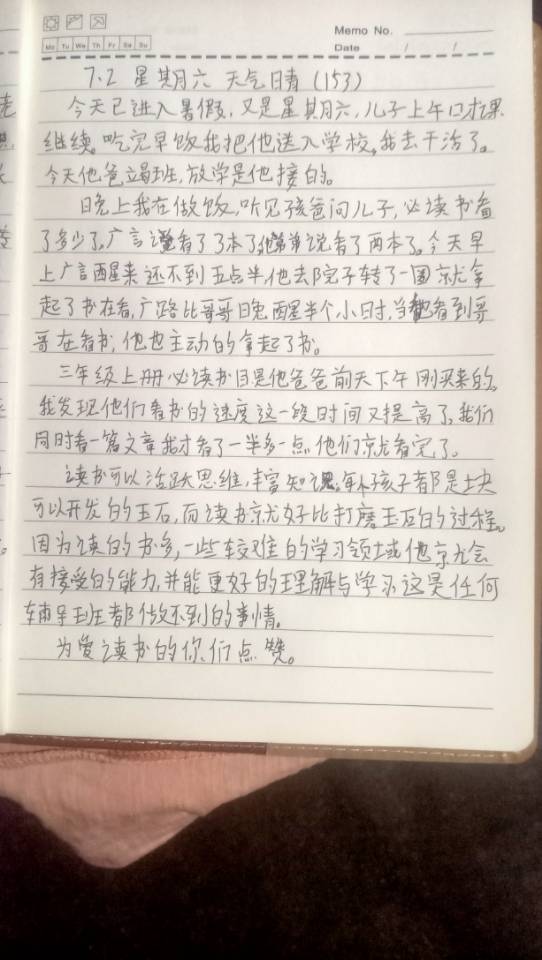 Memo No.
Mo Tu We Th Fr Sa Su
Date / /
7.2 星期六 天气晴 (153)
今天已进入暑假,又是星期六,儿子上午口才课
继续。吃完早饭我把他送入学校,我去干活了。
今天他爸立曷班,放学是他接的。
晚上我在做饭,听见孩爸问儿子,必读书看
了多少了,广言说看了3本了,他弟弟说看了两本了。今天早
上广言醒来还不到五点半,他去院子转了一圈就拿
起了书在看,广路比哥哥晚醒半个小时,当他看到哥
哥在看书,他也主动的拿起了书。
三年级上册必读书目是他爸爸前天下午刚买来的,
我发现他们看书的速度这一段时间又提高了,我们
同时看一篇文章我才看了一半多一点,他们就看完了。
读书可以活跃思维,丰富知识,每个孩子都是块
可以开发的玉石,而读书就好比打磨玉石的过程。
因为读的书多,一些较难的学习领域他就会
有接受的能力,并能更好的理解与学习,这是任何
辅导班都做不到的事情。
为爱读书的你们点赞。